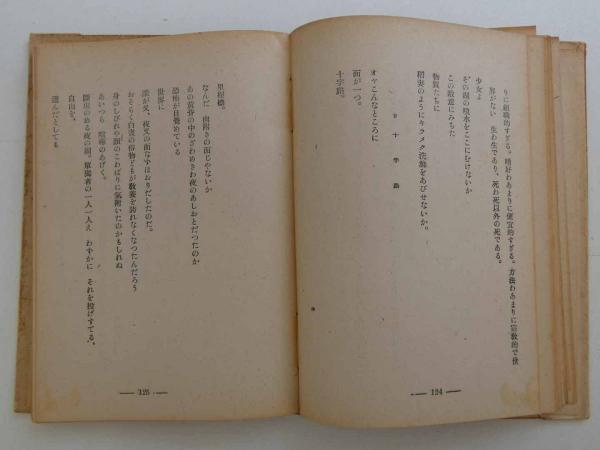 りに組織的すぎる。嗜好わあまりに便宜的すぎる。方法わあまりに宗教的で世
界がない 生わ生であり、死わ死以外の死である。
少女よ
その頭の噴水をここにむけないか
この敷道にみちた
物質たちに
稲妻のようにキラメク洗滌をあびせないか。
十字路
オヤこんなところに
面が一つ。
十字路。
— 124 —
里樹橋。
なんだ 肉附きの面じゃないか
あの黄昏の中のざわめきわ夜のあしおとだつたのか
恐怖が目覚めている
世界に
誰が又、夜叉の面なぞほおりだしたのだ。
おそらく白晝の俗物どもが教養を誇れなくなつたんだろう
身のしびれや頭のこわばりに氣附いたのかもしれぬ
あいつら 喧噪のあげく。
顔のある夜の面。單獨者の一人一人え わずかに それを投げすてる、
自由を。
選んだとしても
— 125 —